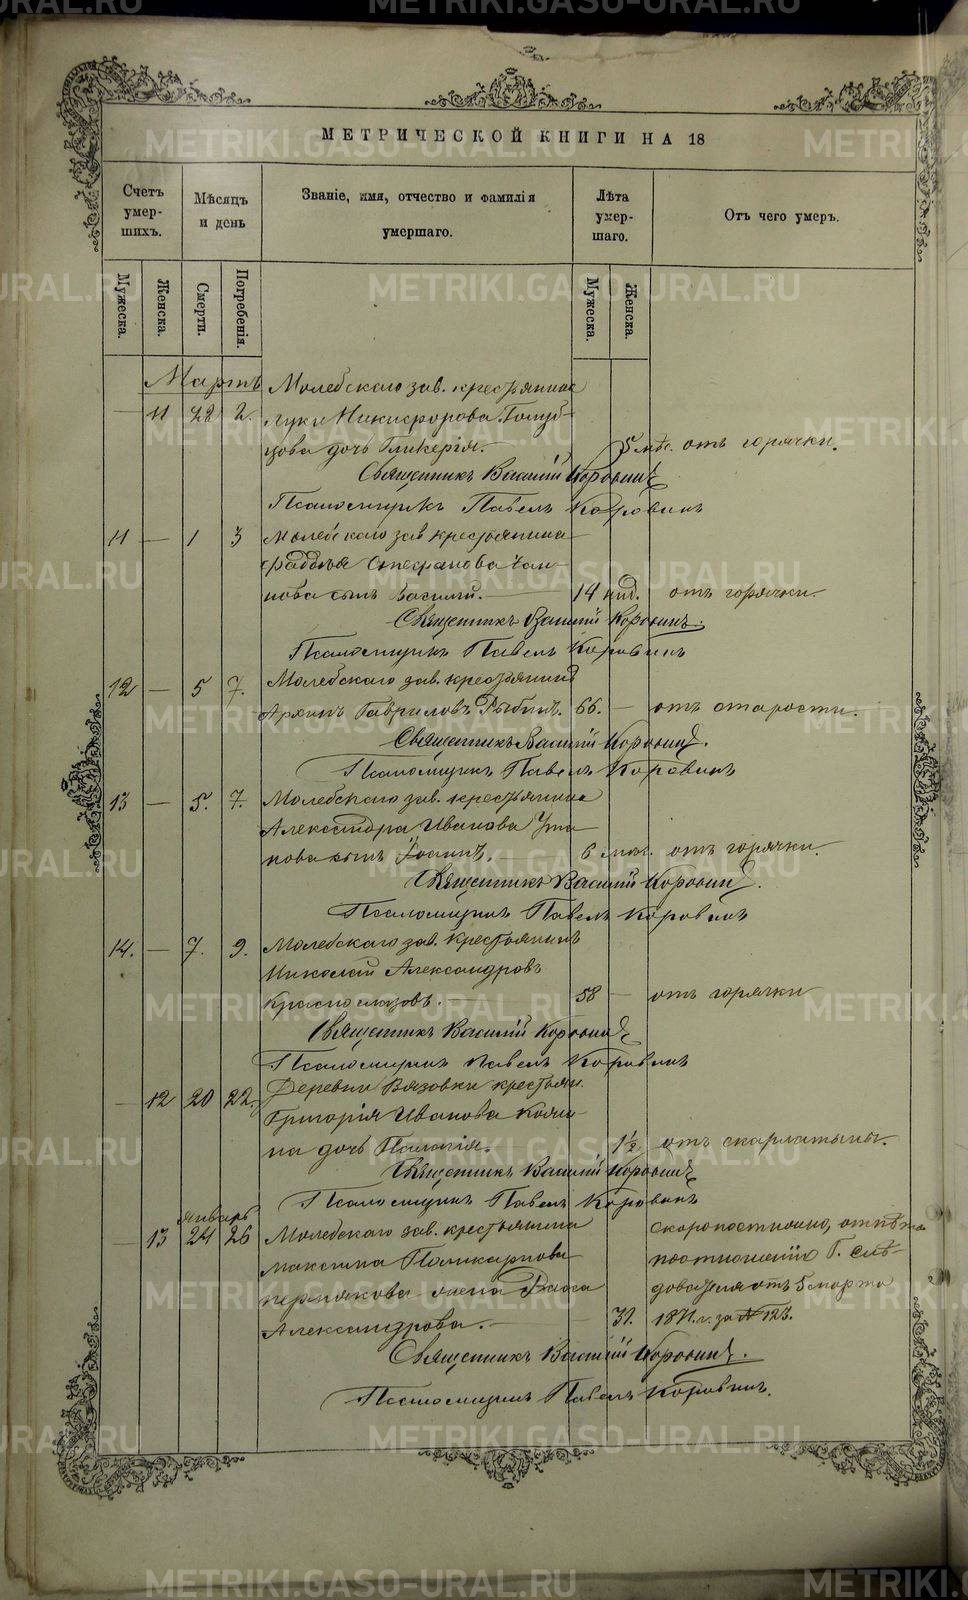 МЕТРИЧЕСКОЙ КНИГИ НА 18
Счетъ умер- шихъ.
Мѣсяцъ и день
Званіе, имя, отчество и фамилія умершаго.
Лѣта умер- шаго.
Отъ чего умеръ.
Мужеска.
Женска.
Смерти.
Погребенія.
Мужеска.
Женска.
Мартъ Молебскаго зав. крестьянина
— 11 22 2. Луки Никифорова Голуб-
цова дочь Гликерія. — 5 мѣс. отъ горячки.
Священникъ Василій Коровинъ
Псаломщикъ Павелъ Коровинъ
11 — 1 3 Молебскаго зав. крестьянина
Фаддея Стефанова
нова сынъ Василій. — 14 нед. отъ горячки.
Священникъ Василій Коровинъ.
Псаломщикъ Павелъ Коровинъ
12 — 5 7. Молебскаго зав. крестьянинъ
Архипъ Гавриловъ Рыбинъ. 66. — отъ старости.
Священникъ Василій Коровинъ.
Псаломщикъ Павелъ Коровинъ
13 — 5. 7. Молебскаго зав. крестьянина
Александра Иванова
нова сынъ Іоаннъ. — 6 мѣс. отъ горячки.
Священникъ Василій Коровинъ.
Псаломщикъ Павелъ Коровинъ
14. — 7. 9. Молебскаго зав. крестьянинъ
Николай Александровъ
Красноглазовъ. — 58 — отъ горячки
Священникъ Василій Коровинъ
Псаломщикъ Павелъ Коровинъ
— 12 20 22. Деревни Вязовки крестьян.
Григорія Иванова
на дочь Палагія. 1½ отъ скарлатины.
Священникъ Василій Коровинъ
Псаломщикъ Павелъ Коровинъ
январь
— 13 24 26 Молебскаго зав. крестьянина
Максима Поликарпова
Пермякова жена Васса
Александрова. — 31.
скоропостижно, отпѣта
по отношенію Г. Слѣ-
дователя отъ 5 марта
1871. г. за № 123.
Священникъ Василій Коровинъ.
Псаломщикъ Павелъ Коровинъ.
METRIKI.GASO-URAL.RU